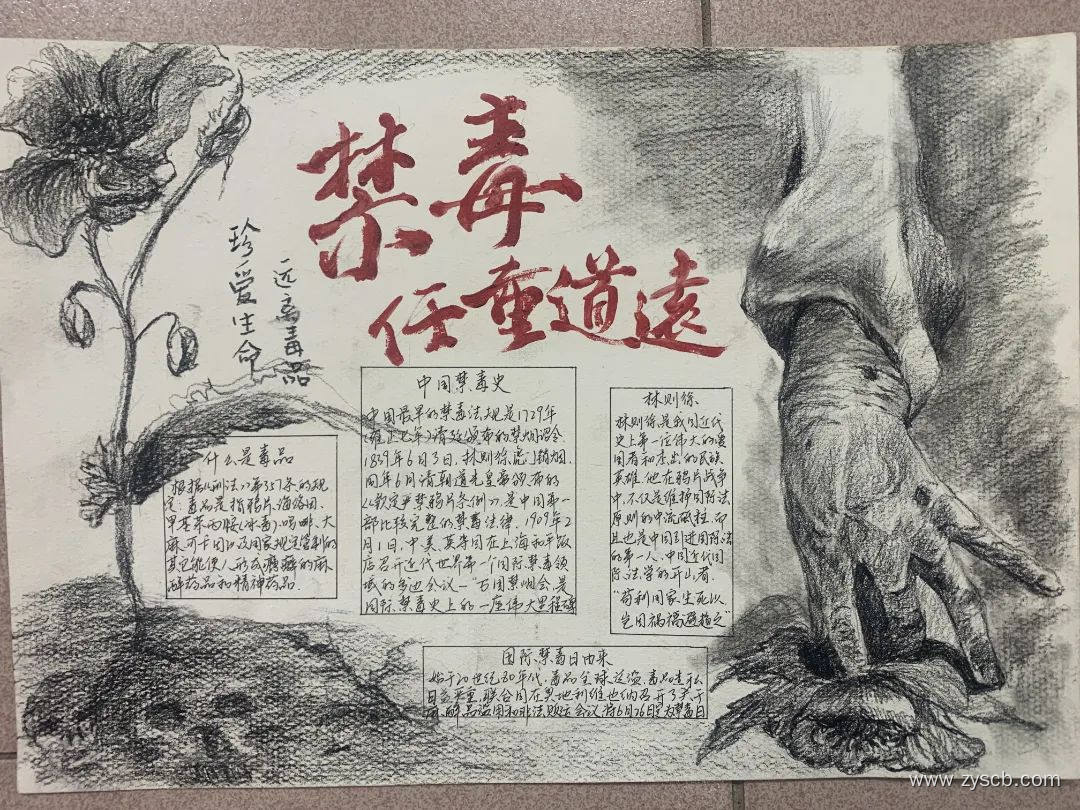 禁毒
任重道遠
珍爱生命
远离毒品
什么是毒品
根据《刑法》第357条的规
定,毒品是指鸦片、海洛因、
甲基苯丙胺(冰毒)、吗啡、大
麻、可卡因以及国家规定管制的
其它能使人形成瘾癖的麻
醉药品和精神药品.
中国禁毒史
中国最早的禁毒法规是1729年
(雍正七年)清政颁布的禁烟谓令
1839年6月3日,林则徐虎门销烟.
同年6月请朝道光皇帝颁布的
《钦定严禁鸦片条例》,是中国第一
部比较完整的禁毒法律.1909年2
月1日,中、美、英等国在上海和平饭
店召开近代世界第一个国际禁毒领
域的多边会议—"万国禁烟会,是
国际禁毒史上的一座伟大里程碑
林则徐
林则徐是我国近代
史上第一位伟大的爱
国者和杰出的民族
英雄.他在鸦片战争
中,不仅是维护国际法
原则的中流砥柱,而
且也是中国引进国际法
的第一人、中国近代国
际法学的开山者.
"苟利国家生死以
岂因祸福避趋之"
国际禁毒日由来
始于20世纪80年代,毒品全球泛滥,毒品走私
日益严重,联合国在奥地利维也纳召开了关于
麻醉品滥用和非法贩运会议,将6月26日定为禁毒日
www.zyscb.com